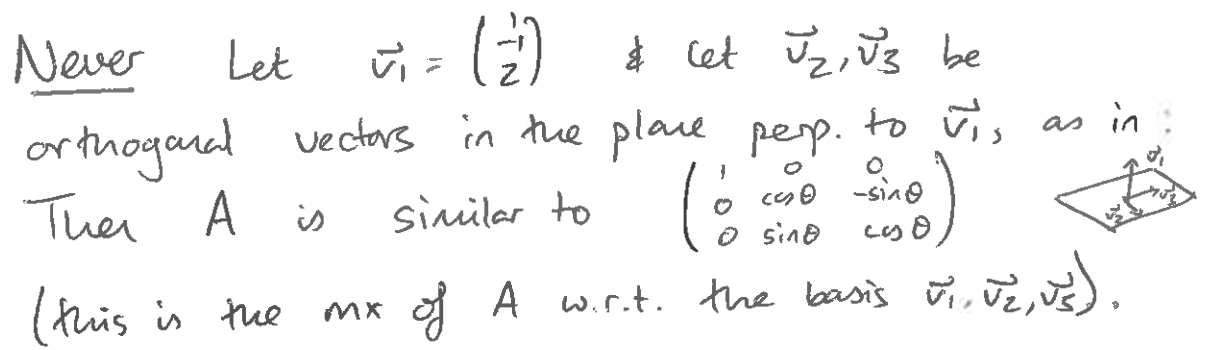 Never Let v⃗₁ = (1 -1 2) & let v⃗₂, v⃗₃ be
orthogonal vectors in the plane perp. to v⃗₁, as in:
Then A is similar to (1 0 0 0 cosθ -sinθ 0 sinθ cosθ) v⃗₁ v⃗₂ v⃗₃
(this is the mx of A w.r.t. the basis v⃗₁, v⃗₂, v⃗₃).